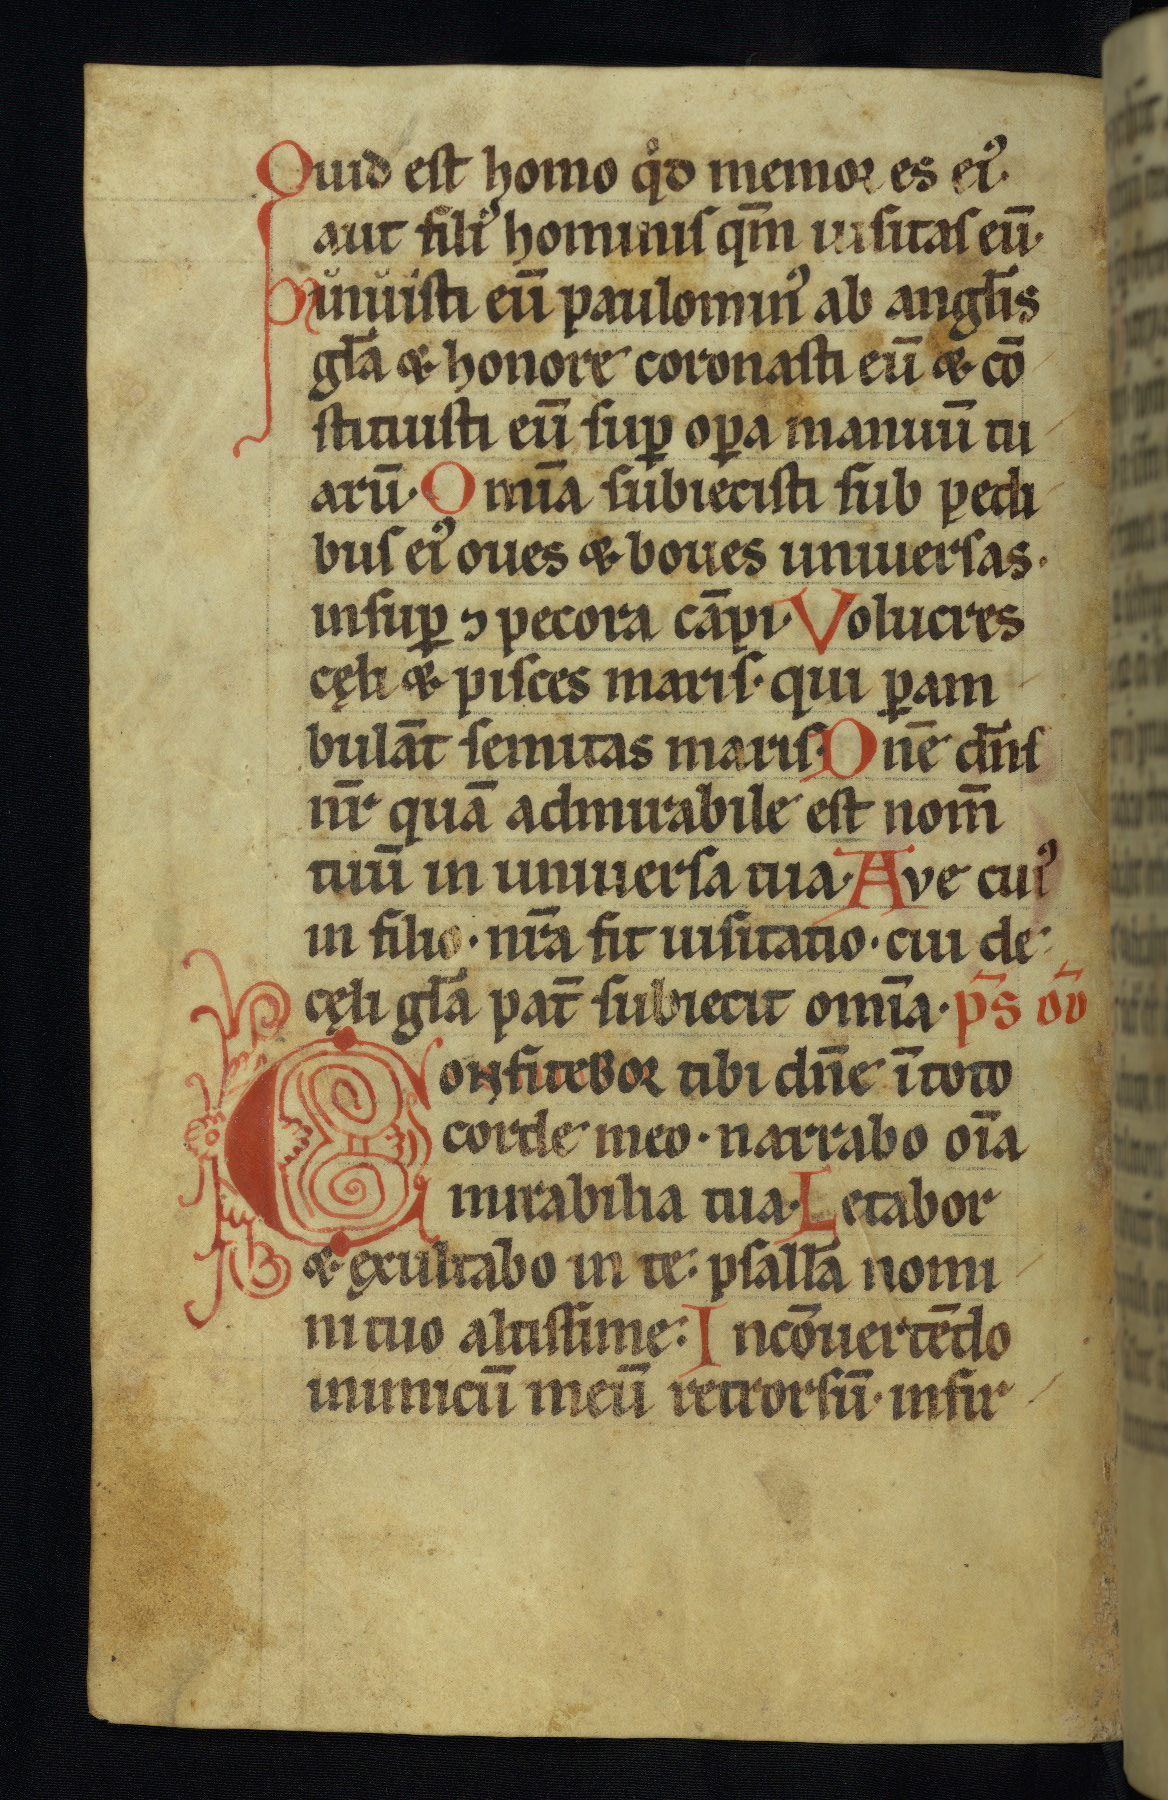 Quid est homo qͦd memor es eiꝰ·
aut filiꝰ hominis qm̄ uisitas eū·
Minuisti eū paulominꝰ ab angl̄is
gl̄a & honore coronasti eū & cō
stituisti eū suꝑ oꝑa manuū tu
arū· Omīa subiecisti sub pedi
bus eiꝰ oues & boues uniuersas·
insuꝑ ⁊ pecora cāpi· Volucres
cęli & pisces maris· qui ꝑam
bulāt semitas maris· Dn̄e dn̄s
nr̄ quā admirabile est nom̄
tuū in uniuersa tua· Ave cuiꝰ
in filio· nr̄a fit uisitatio· cui de
cęli gl̄a pat̄ subiecit omīa· p̄s dd̄
Confitebor tibi dn̄e ī toto
corde meo· narrabo oīa
mirabilia tua· Letabor
& exultabo in te· psallā nomi
ni tuo altissime: In cōuertēdo
inimicū meū retrorsū· infir